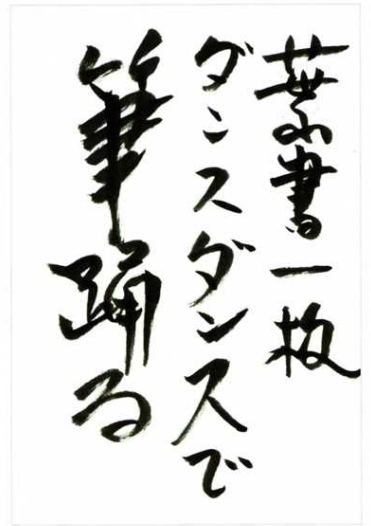 葉書一枚
ダンスダンスで
筆踊る